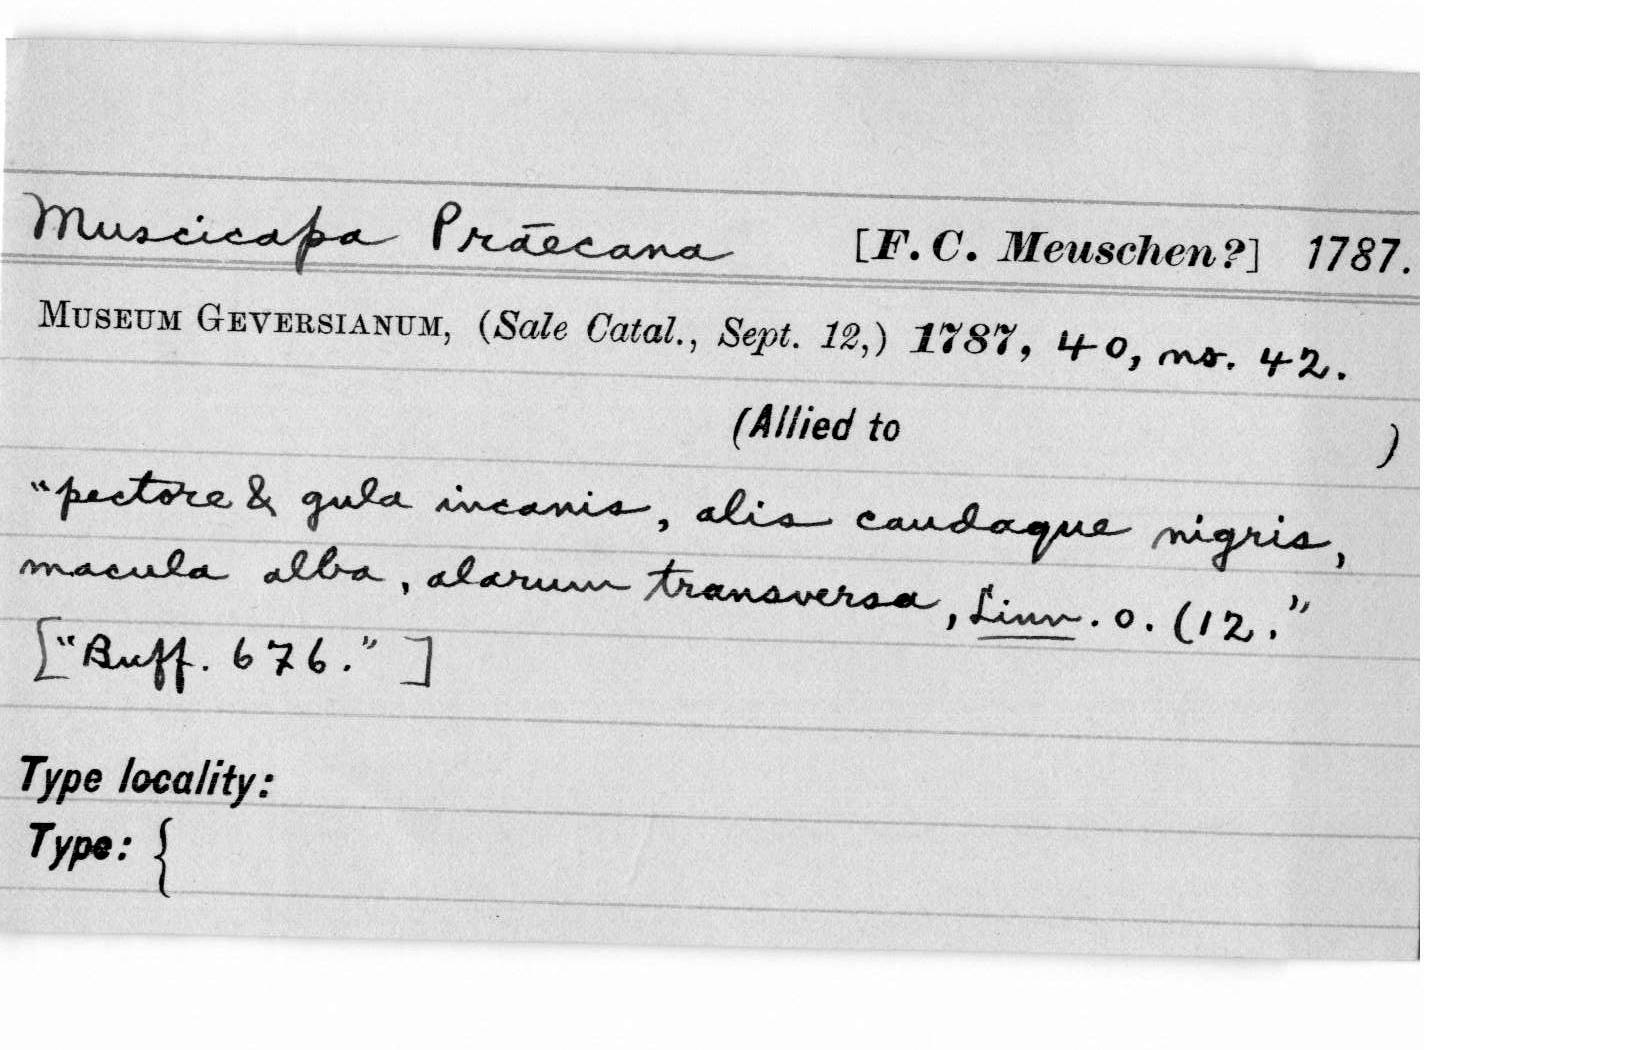 Muscicapa Práecana [F. C. Meuschen?] 1787.
MUSEUM GEVERSIANUM, (Sale Catal., Sept. 12,) 1787, 40, no. 42.
(Allied to )
"pectore & gula incanis, alis caudaque nigris,
macula alba, alarum transversa, Linn. o. (12."
["Buff. 676."]
Type locality:
Type: {